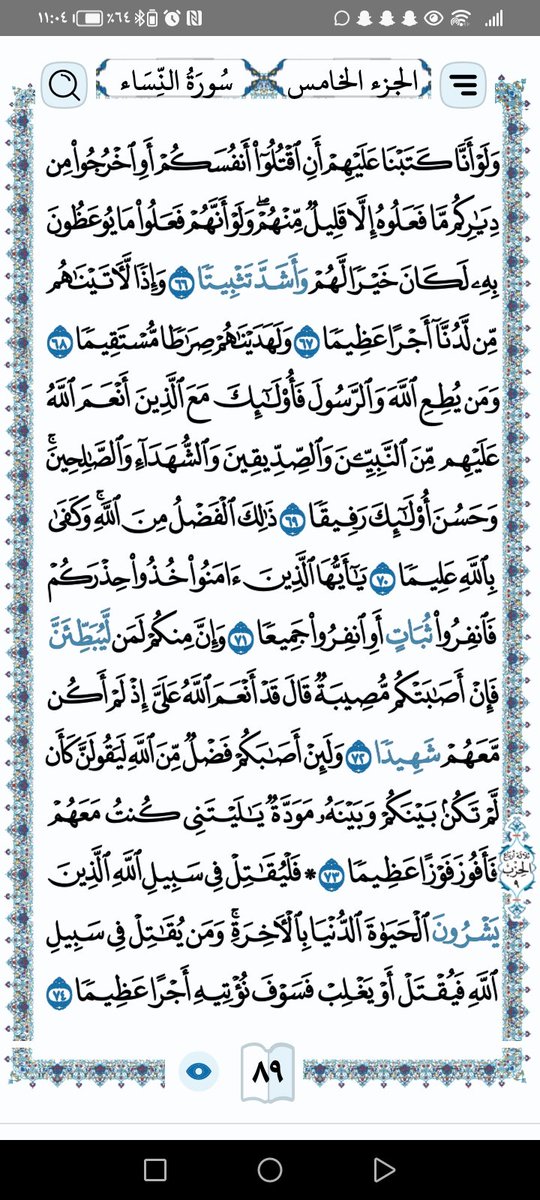 ١١:٠٤ ٪٦٤
الجزء الخامس سُورَةُ النِّسَاء
وَلَوْ أَنَّا كَتَبْنَا عَلَيْهِمْ أَنِ ٱقْتُلُوٓا۟ أَنفُسَكُمْ أَوِ ٱخْرُجُوا۟ مِن
دِيَـٰرِكُم مَّا فَعَلُوهُ إِلَّا قَلِيلٌ مِّنْهُمْ ۖ وَلَوْ أَنَّهُمْ فَعَلُوا۟ مَا يُوعَظُونَ
بِهِۦ لَكَانَ خَيْرًا لَّهُمْ وَأَشَدَّ تَثْبِيتًا ٦٦ وَإِذًا لَّـَٔاتَيْنَـٰهُم
مِّن لَّدُنَّآ أَجْرًا عَظِيمًا ٦٧ وَلَهَدَيْنَـٰهُمْ صِرَٰطًا مُّسْتَقِيمًا ٦٨
وَمَن يُطِعِ ٱللَّهَ وَٱلرَّسُولَ فَأُو۟لَـٰٓئِكَ مَعَ ٱلَّذِينَ أَنْعَمَ ٱللَّهُ
عَلَيْهِم مِّنَ ٱلنَّبِيِّـۧنَ وَٱلصِّدِّيقِينَ وَٱلشُّهَدَآءِ وَٱلصَّـٰلِحِينَ ۚ
وَحَسُنَ أُو۟لَـٰٓئِكَ رَفِيقًا ٦٩ ذَٰلِكَ ٱلْفَضْلُ مِنَ ٱللَّهِ ۚ وَكَفَىٰ
بِٱللَّهِ عَلِيمًا ٧٠ يَـٰٓأَيُّهَا ٱلَّذِينَ ءَامَنُوا۟ خُذُوا۟ حِذْرَكُمْ
فَٱنفِرُوا۟ ثُبَاتٍ أَوِ ٱنفِرُوا۟ جَمِيعًا ٧١ وَإِنَّ مِنكُمْ لَمَن لَّيُبَطِّئَنَّ
فَإِنْ أَصَـٰبَتْكُم مُّصِيبَةٌ قَالَ قَدْ أَنْعَمَ ٱللَّهُ عَلَىَّ إِذْ لَمْ أَكُن
مَّعَهُمْ شَهِيدًا ٧٢ وَلَئِنْ أَصَـٰبَكُمْ فَضْلٌ مِّنَ ٱللَّهِ لَيَقُولَنَّ كَأَن
لَّمْ تَكُنۢ بَيْنَكُمْ وَبَيْنَهُۥ مَوَدَّةٌ يَـٰلَيْتَنِى كُنتُ مَعَهُمْ
فَأَفُوزَ فَوْزًا عَظِيمًا ٧٣ * فَلْيُقَـٰتِلْ فِى سَبِيلِ ٱللَّهِ ٱلَّذِينَ
ثلاثة أرباع
الحزب
٩
يَشْرُونَ ٱلْحَيَوٰةَ ٱلدُّنْيَا بِٱلْـَٔاخِرَةِ ۚ وَمَن يُقَـٰتِلْ فِى سَبِيلِ
ٱللَّهِ فَيُقْتَلْ أَوْ يَغْلِبْ فَسَوْفَ نُؤْتِيهِ أَجْرًا عَظِيمًا ٧٤
٨٩